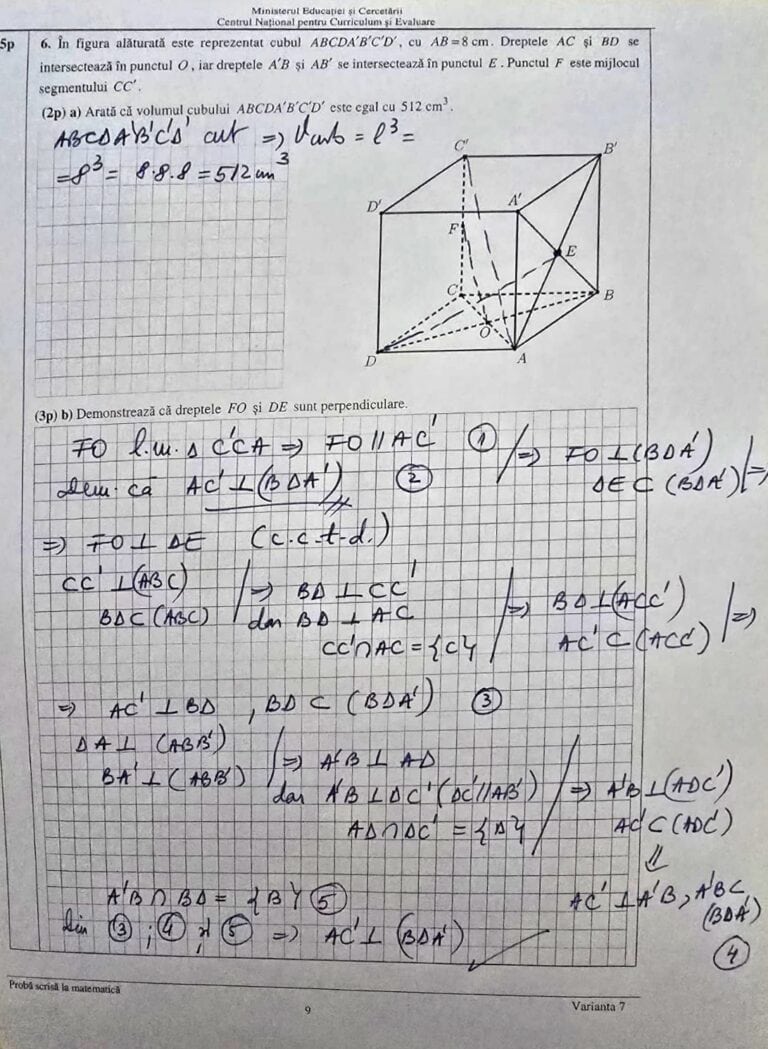 Ministerul Educației și Cercetării
Centrul Național pentru Curriculum și Evaluare
5p
6. În figura alăturată este reprezentat cubul ABCDA'B'C'D', cu AB = 8 cm. Dreptele AC și BD se
intersectează în punctul O, iar dreptele A'B și AB' se intersectează în punctul E. Punctul F este mijlocul
segmentului CC'.
(2p) a) Arată că volumul cubului ABCDA'B'C'D' este egal cu 512 cm³.
ABCDA'B'C'D' cub => Vcub = l³ =
= 8³ = 8·8·8 = 512 cm³
C'
B'
D'
A'
F
E
C
B
O
D
A
(3p) b) Demonstrează că dreptele FO și DE sunt perpendiculare.
FO l.m. Δ C'CA => FO // AC' ① / => FO ⊥ (BDA')
Dem. că AC' ⊥ (BDA') ② DE ⊂ (BDA') / =>
=> FO ⊥ DE (c.c.t.d.)
CC' ⊥ (ABC) / => BD ⊥ CC' / => BD ⊥ (ACC')
BD ⊂ (ABC) dar BD ⊥ AC AC' ⊂ (ACC') / =>
CC' ∩ AC = {C}
=> AC' ⊥ BD, BD ⊂ (BDA') ③
DA ⊥ (ABB') / => A'B ⊥ AD
BA' ⊥ (ABB') dar A'B ⊥ DC' (DC' // AB') / => A'B ⊥ (ADC')
AD ∩ DC' = {D} AC' ⊂ (ADC')
⇓
A'B ∩ BD = {B} ⑤ AC' ⊥ A'B, A'B ⊂ (BDA') ④
Din ③; ④ și ⑤ => AC' ⊥ (BDA')
Probă scrisă la matematică
9
Varianta 7